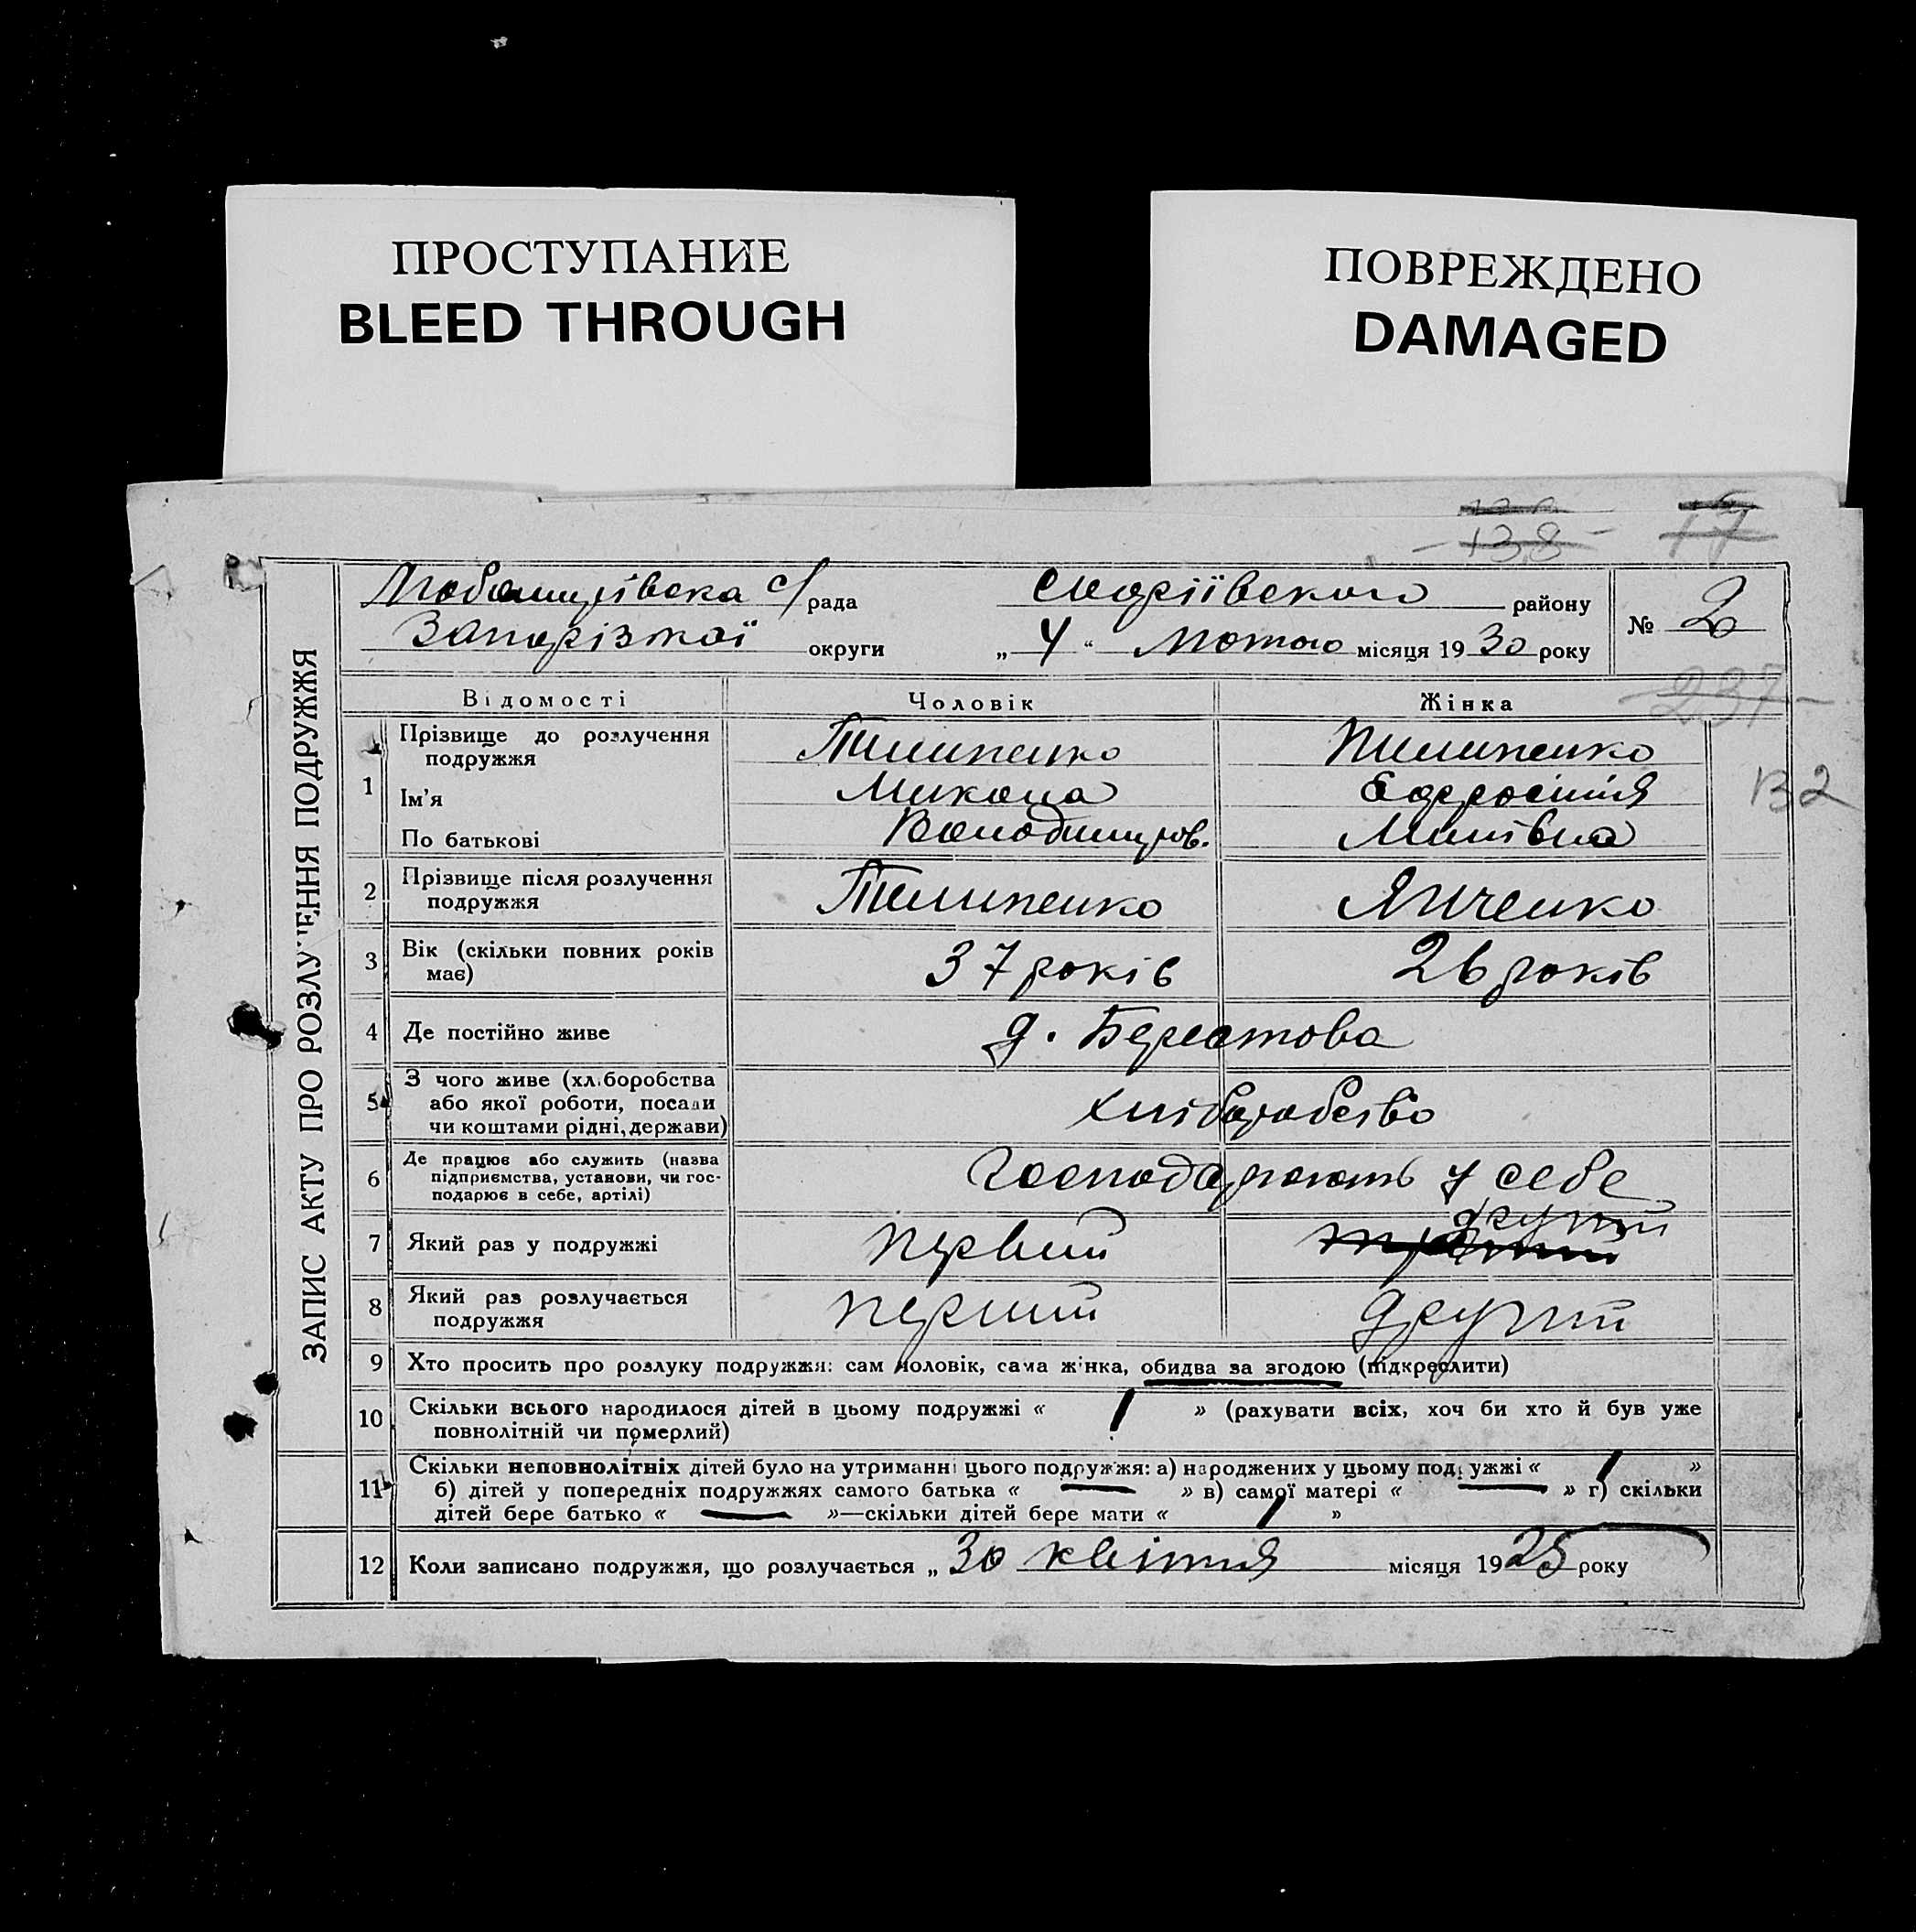 ПРОСТУПАНИЕ
BLEED THROUGH
ПОВРЕЖДЕНО
DAMAGED
138
17
ЗАПИС АКТУ ПРО РОЗЛУЧЕННЯ ПОДРУЖЖЯ
Любомирівска с/рада району
№ 2
Запорізької округи „ 4 “ Лютого місяця 1930 року
237
Відомості Чоловік Жінка
Прізвище до розлучення Пилипенко Пилипенко
подружжя
1 Ім'я Микола Ефросинія
132
По батькові Володимиров.
2 Прізвище після розлучення Пилипенко
подружжя
3 Вік (скільки повних років 37 років 26 років
має)
4 Де постійно живе д. Берестова
5 З чого живе (хліборобства
або якої роботи, посади хліборобство
чи коштами рідні, держави)
6 Де працює або служить (назва
підприємства, установи, чи гос- Господарюють у себе
подарює в себе, артілі)
другий
7 Який раз у подружжі первий
8 Який раз розлучається перший другий
подружжя
9 Хто просить про розлуку подружжя: сам чоловік, сама жінка, обидва за згодою (підкреслити)
10 Скільки всього народилося дітей в цьому подружжі « 1 » (рахувати всіх, хоч би хто й був уже
повнолітній чи померлий)
11 Скільки неповнолітніх дітей було на утриманні цього подружжя: а) народжених у цьому подружжі « 1 »
б) дітей у попередніх подружжях самого батька « — » в) самої матері « — » г) скільки
дітей бере батько « — »—скільки дітей бере мати « 1 »
12 Коли записано подружжя, що розлучається „ 30 квітня місяця 1925 року